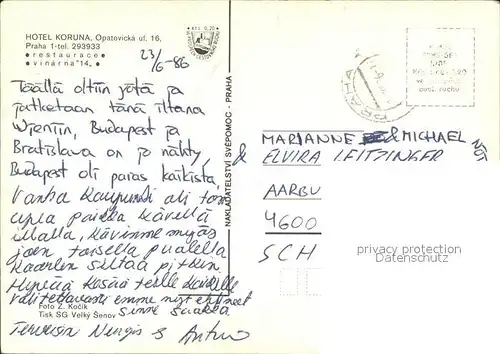 HOTEL KORUNA, Opatovická ul. 16,
Praha 1-tel. 293933
● restaurace
● vinárna "14"
23/6-86
Kčs 0,20
PRAHA
NAKLADATELSTVÍ SVÉPOMOC - PRAHA
Täällä oltiin yötä ja
jatketaan tänä iltana
Wieniin, Budapest ja
Bratislava on jo nähty,
Budapest oli paras kaikista,
Vanha Kaupunki oli
paikka kävellä
illalla, kävimme myös
joen toisella puolella
Kaarlen siltaa pitkin.
Hyvää Kesää teille kaikille
valitettavasti emme nyt ehtineet
sinne saakka
Foto Z. Kočík
Tisk SG Velký Šenov
Terveisin &
MARIANNE & MICHAEL
& ELVIRA LEITZINGER
AARBU
4600
SCH
privacy protection
Datenschutz